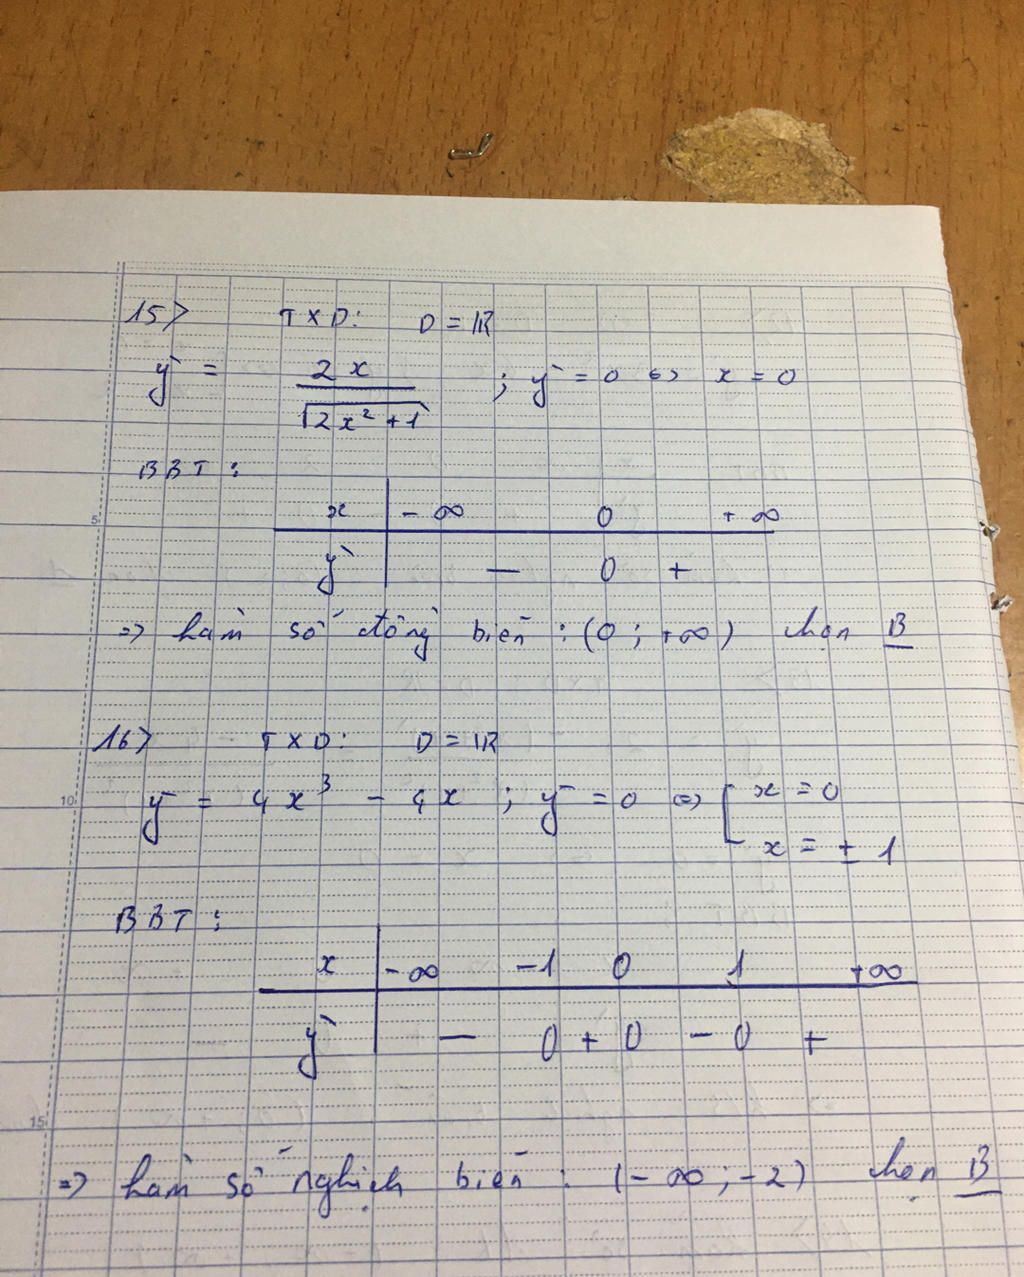 15> TXD: D = ℝ
y' = 2x / √(2x² + 1) ; y' = 0 ⇔ x = 0
BBT :
x | -∞ 0 +∞
y' | − 0 +
=> hàm số đồng biến : (0 ; +∞) chọn B
16> TXD: D = ℝ
y' = 4x³ - 4x ; y' = 0 ⇔ [ x = 0
x = ± 1
BBT :
x | -∞ -1 0 1 +∞
y' | − 0 + 0 − 0 +
=> hàm số nghịch biến : (-∞ ; -2) chọn B
5
10
15